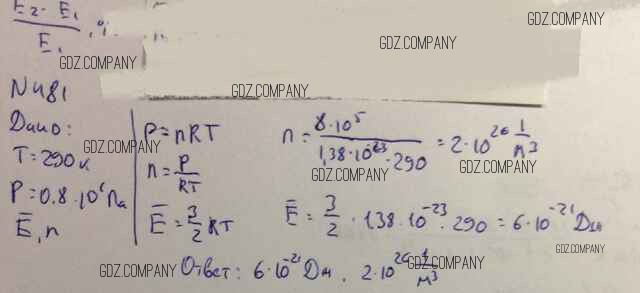 E₂-E₁
E₁ , %
GDZ.COMPANY
GDZ.COMPANY
GDZ.COMPANY
GDZ.COMPANY
N481
Дано:
T=290к
P=0.8·10⁶Па
Ē, n
P=nRT
n=P/RT
Ē=3/2 RT
GDZ.COMPANY
n=8·10⁵/1,38·10⁻²³·290=2·10²⁶ 1/м³
GDZ.COMPANY
GDZ.COMPANY
Ē=3/2·1,38·10⁻²³·290=6·10⁻²¹Дж
GDZ.COMPANY
GDZ.COMPANY
Ответ: 6·10⁻²¹Дж, 2·10²⁶ 1/м³
GDZ.COMPANY
GDZ.COMPANY